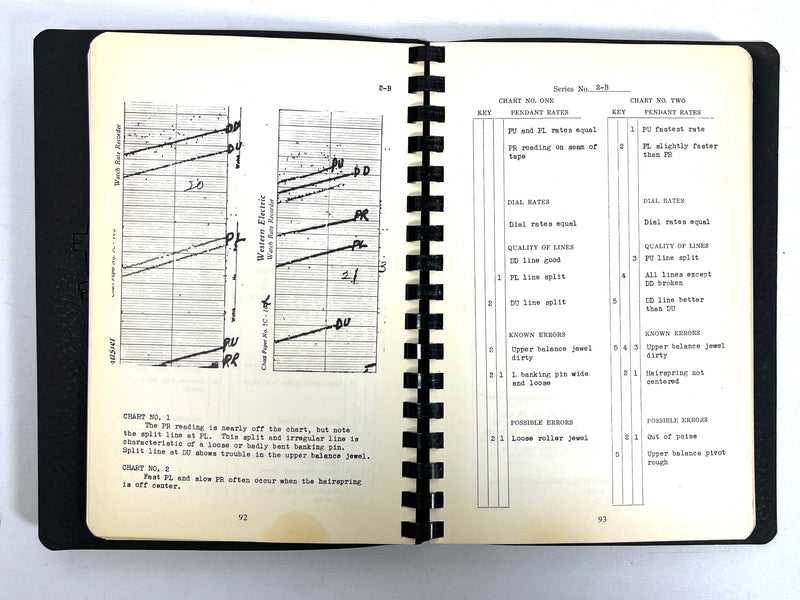 2-B
Watch Rate Recorder
DD
DU
20
PL
PU
PR
Western Electric
Watch Rate Recorder
PU
DD
PR
PL
21
DU
CHART NO. 1
The PR reading is nearly off the chart, but note
the split line at PL. This split and irregular line is
characteristic of a loose or badly bent banking pin.
Split line at DU shows trouble in the upper balance jewel.
CHART NO. 2
Fast PL and slow PR often occur when the hairspring
is off center.
92
Series No. 2-B
CHART NO. ONE
KEY PENDANT RATES
PU and PL rates equal
PR reading on seam of
tape
DIAL RATES
Dial rates equal
QUALITY OF LINES
DD line good
1 PL line split
2 DU line split
KNOWN ERRORS
2 Upper balance jewel
dirty
2 1 L banking pin wide
and loose
POSSIBLE ERRORS
2 1 Loose roller jewel
CHART NO. TWO
KEY PENDANT RATES
1 PU fastest rate
2 PL slightly faster
than PR
DIAL RATES
Dial rates equal
QUALITY OF LINES
3 PU line split
4 All lines except
DD broken
5 DD line better
than DU
KNOWN ERRORS
5 4 3 Upper balance jewel
dirty
2 1 Hairspring not
centered
POSSIBLE ERRORS
2 1 Out of poise
5 Upper balance pivot
rough
93